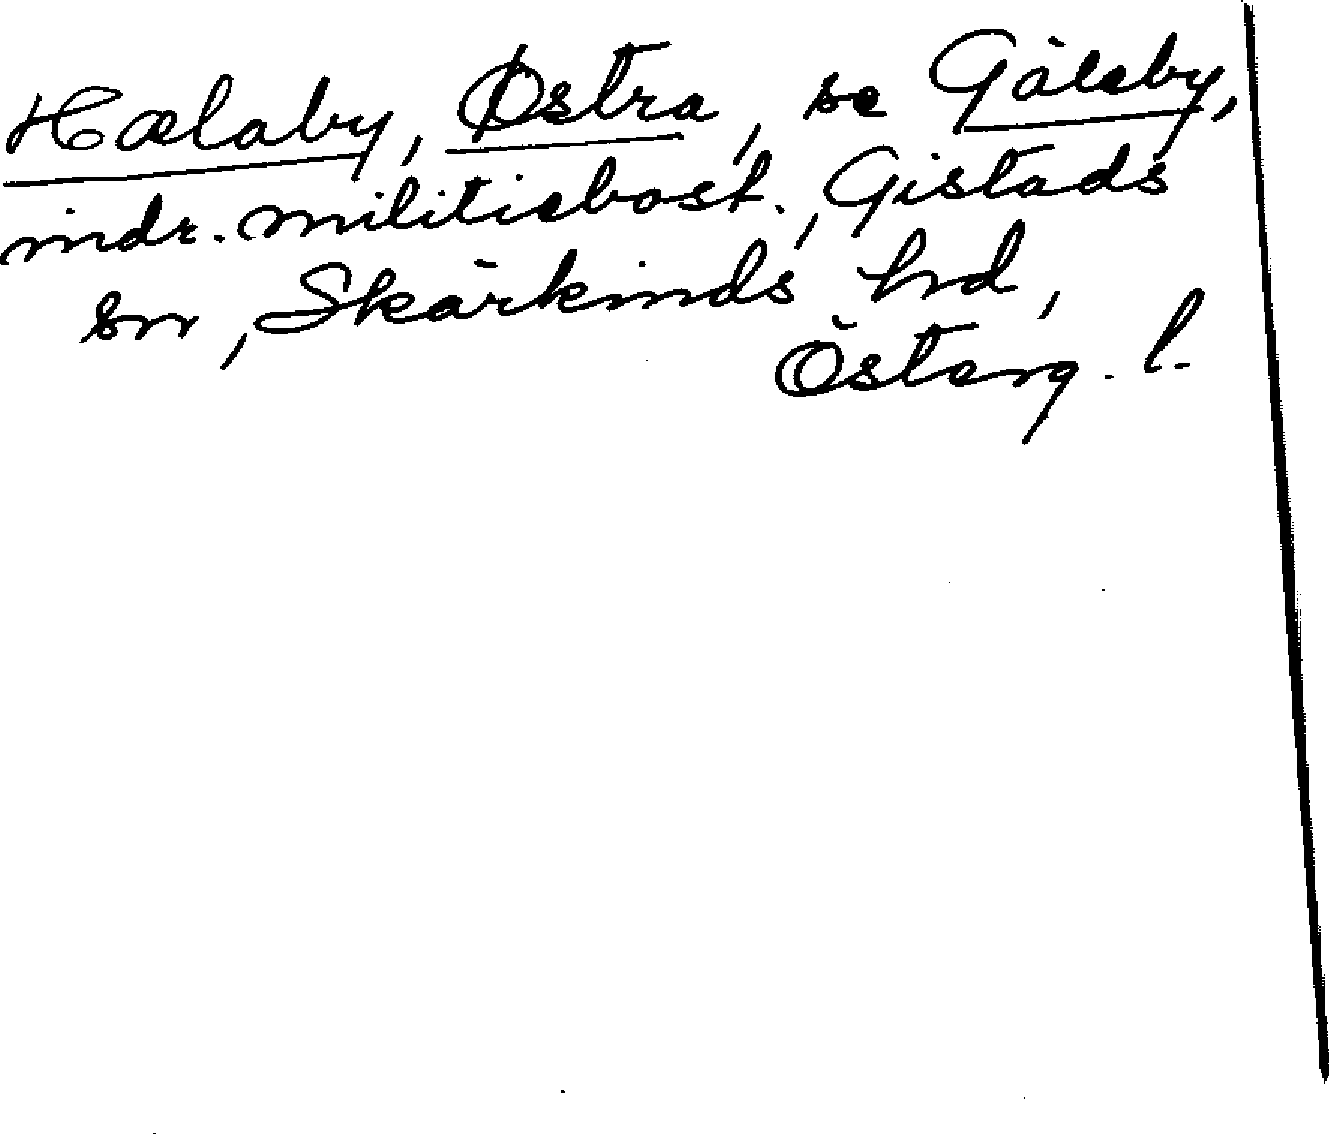 Hælaby, Østra, se Gåleby,
indr. militiebost., Gistads
sn, Skärkinds hd,
Österg. l.